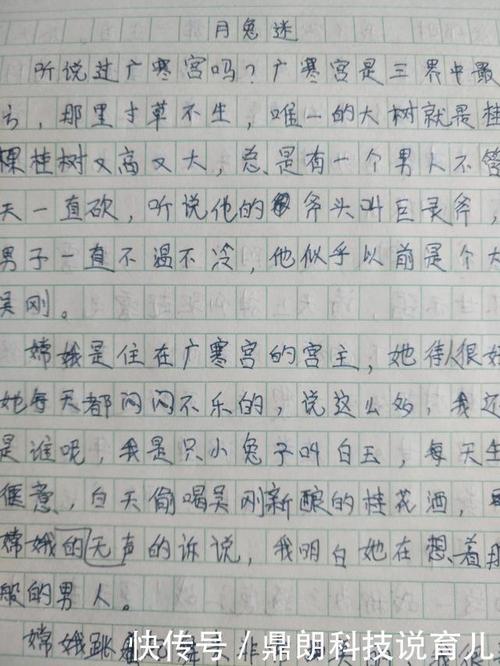 月兔迷
听说过广寒宫吗？广寒宫是三界中最
方，那里寸草不生，唯一的大树就是桂
棵桂树又高又大，总是有一个男人不管
天一直砍，听说他的斧头叫巨灵斧，
男子一直不温不冷，他似乎以前是个大
吴刚。
嫦娥是住在广寒宫的宫主，她待人很好
她每天都闷闷不乐的，说这么多，我还
是谁呢，我是只小兔子叫白玉，每天生
惬意，白天偷喝吴刚新酿的桂花酒，
嫦娥的无声的诉说，我明白她在想着那
般的男人。
嫦娥跳
快传号/鼎朗科技说育儿